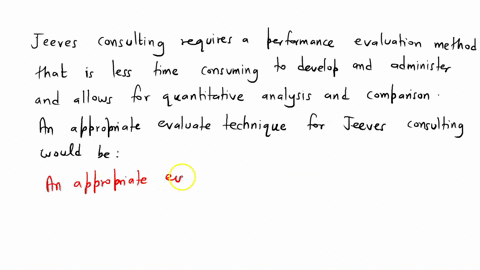 Jeeves consulting requires a performance evaluation method
that is less time consuming to develop and administer
and allows for quantitative analysis and comparison.
An appropriate evaluate technique for Jeeves consulting
would be:
An appropriate ev